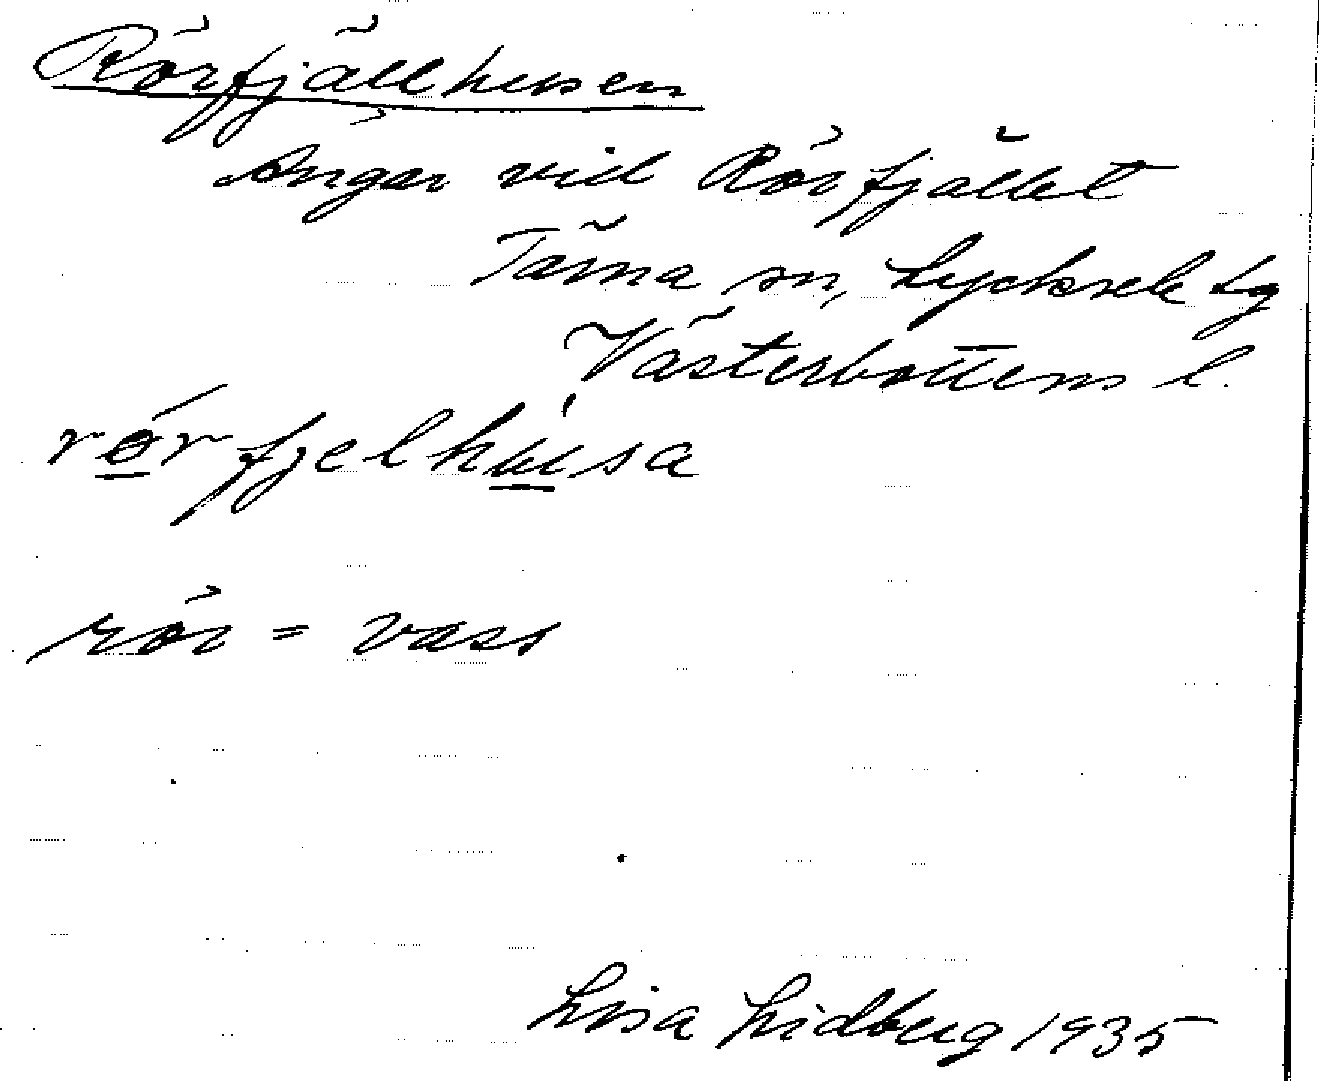 Rörfjällhusen
Ängar vid Rörfjället
Tärna sn, Lycksele lg
Västerbottens l.
rörfjelhusa
rör = vass
Lisa Lidberg 1935